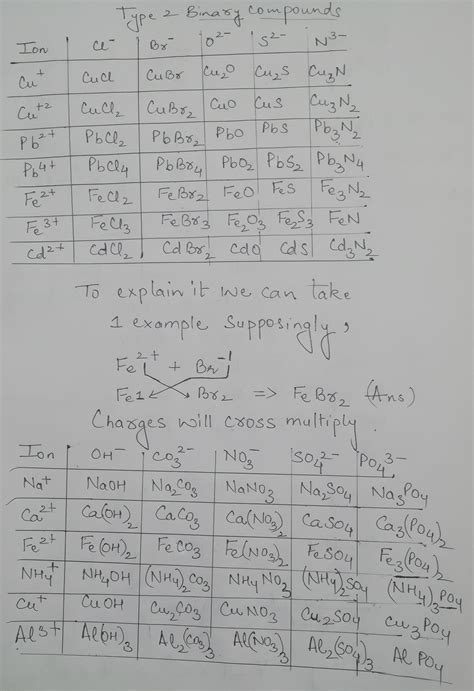 Type 2 Binary compounds
Ion Cl⁻ Br⁻ O²⁻ S²⁻ N³⁻
Cu⁺ CuCl CuBr Cu₂O Cu₂S Cu₃N
Cu⁺² CuCl₂ CuBr₂ CuO CuS Cu₃N₂
Pb²⁺ PbCl₂ PbBr₂ PbO PbS Pb₃N₂
Pb⁴⁺ PbCl₄ PbBr₄ PbO₂ PbS₂ Pb₃N₄
Fe²⁺ FeCl₂ FeBr₂ FeO FeS Fe₃N₂
Fe³⁺ FeCl₃ FeBr₃ Fe₂O₃ Fe₂S₃ FeN
Cd²⁺ CdCl₂ CdBr₂ CdO CdS Cd₃N₂
To explain it we can take
1 example supposingly,
Fe²⁺ + Br⁻¹
Fe1 Br₂ => FeBr₂ (Ans)
Charges will cross multiply.
Ion OH⁻ CO₃²⁻ NO₃⁻ SO₄²⁻ PO₄³⁻
Na⁺ NaOH Na₂CO₃ NaNO₃ Na₂SO₄ Na₃PO₄
Ca²⁺ Ca(OH)₂ CaCO₃ Ca(NO₃)₂ CaSO₄ Ca₃(PO₄)₂
Fe²⁺ Fe(OH)₂ FeCO₃ Fe(NO₃)₂ FeSO₄ Fe₃(PO₄)₂
NH₄⁺ NH₄OH (NH₄)₂CO₃ NH₄NO₃ (NH₄)₂SO₄ (NH₄)₃PO₄
Cu⁺ CuOH Cu₂CO₃ CuNO₃ Cu₂SO₄ Cu₃PO₄
Al³⁺ Al(OH)₃ Al₂(CO₃)₃ Al(NO₃)₃ Al₂(SO₄)₃ AlPO₄